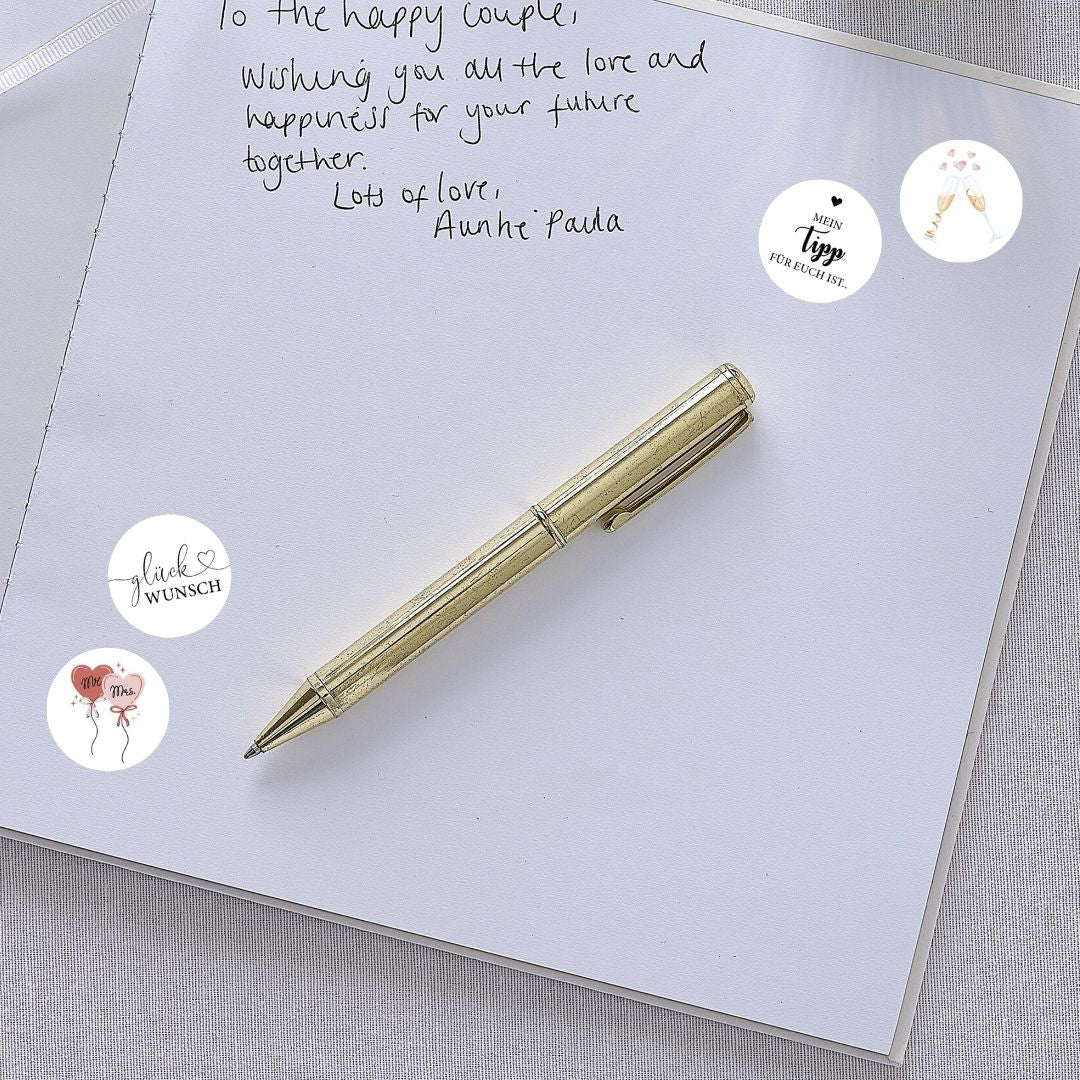 To the happy couple,
Wishing you all the love and
happiness for your future
together.
Lots of love,
Auntie Paula
MEIN
Tipp
FÜR EUCH IST..
glück
WUNSCH
Mr.
Mrs.